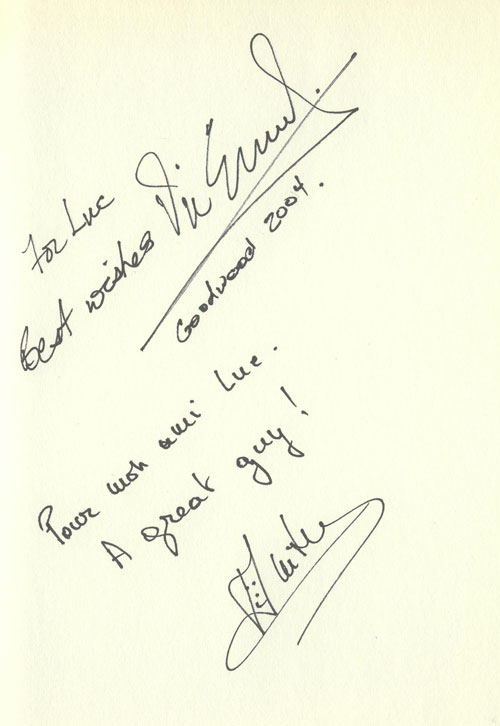 For Luc
Best wishes Vic
Goodwood 2004.
Pour mon ami Luc.
A great guy!